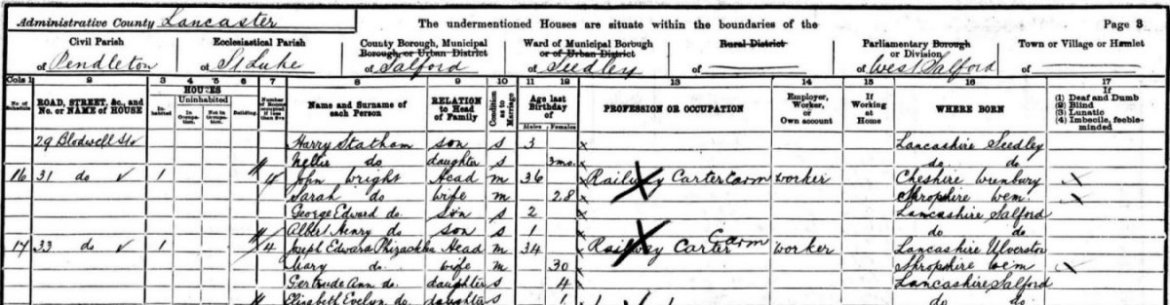 Administrative County Lancaster The undermentioned Houses are situate within the boundaries of the Page 3
Civil Parish Ecclesiastical Parish County Borough, Municipal Borough, or Urban District Ward of Municipal Borough or of Urban District Rural District Parliamentary Borough or Division Town or Village or Hamlet
of Pendleton of St Luke of Salford of Seedley of of West Salford of
Cols 1 2 3 4 5 6 7 8 9 10 11 12 13 14 15 16 17
ROAD, STREET, &c., and No. or NAME of HOUSE HOUSES Inhabited Uninhabited In Occupation. Not in Occupation. Building. Name and Surname of each Person RELATION to Head of Family Condition as to Marriage Age last Birthday of Males Females PROFESSION OR OCCUPATION Employer, Worker, or Own account If Working at Home WHERE BORN If (1) Deaf and Dumb (2) Blind (3) Lunatic (4) Imbecile, feeble-minded
29 Blodwell St Harry Statham son S 3 Lancashire Seedley
Nellie do daughter S 3mo do do
16 31 do 1 4 John Wright Head M 36 Railway Carter Carm worker Cheshire Wrenbury
Sarah do wife M 28 Shropshire Wem
George Edward do son S 2 Lancashire Salford
Albert Henry do son S 1 do do
17 33 do 1 4 Joseph Edward Head M 34 Railway Carter Carm worker Lancashire Ulverston
Mary do wife M 30 Shropshire Wem
Gertrude Ann do daughter S 4 Lancashire Salford
Elizabeth Evelyn do daughter S 1 do do